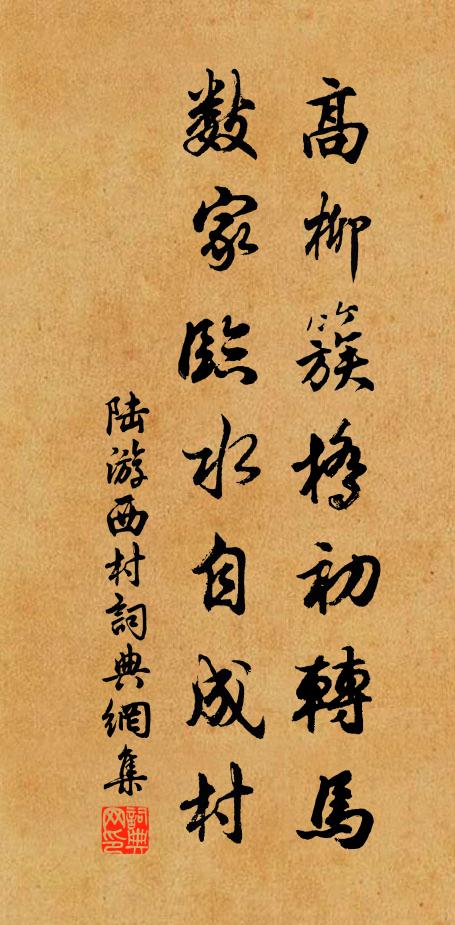 高柳簇橋初轉馬
數家臨水自成村
陸游西村詞典網集
詞典網印